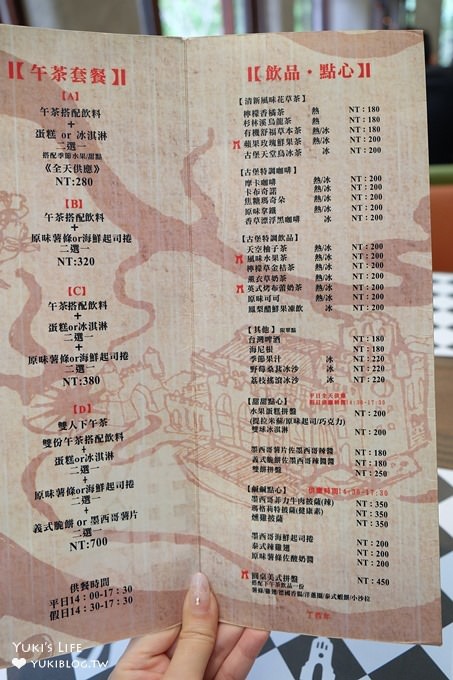 【午茶套餐】
【A】
午茶搭配飲料
+
蛋糕 or 冰淇淋
二選一
搭配季節水果/甜點
《全天供應》
NT:280
【B】
午茶搭配飲料
+
原味薯條or海鮮起司捲
二選一
NT:320
【C】
午茶搭配飲料
+
蛋糕or冰淇淋
二選一
+
原味薯條or海鮮起司捲
二選一
NT:380
【D】
雙人下午茶
雙份午茶搭配飲料
+
蛋糕or冰淇淋
二選一
+
原味薯條or海鮮起司捲
二選一
+
義式脆餅 or 墨西哥薯片
二選一
NT:700
供餐時間
平日14:00-17:30
假日14:30-17:30
【飲品・點心】
【清新風味花草茶】
檸檬香橘茶 熱 NT:180
杉林溪烏龍茶 熱 NT:180
有機舒福草本茶 熱/冰 NT:180
蘋果玫瑰鮮果茶 熱/冰 NT:200
古堡天堂鳥冰茶 冰 NT:200
【古堡特調咖啡】
摩卡咖啡 熱/冰 NT:200
卡布奇諾 熱/冰 NT:200
焦糖瑪奇朵 熱/冰 NT:200
原味拿鐵 熱/冰 NT:200
香草漂浮黑咖啡 冰 NT:200
【古堡特調飲品】
天空柚子茶 熱/冰 NT:200
風味水果茶 熱/冰 NT:200
檸檬草金桔茶 熱/冰 NT:200
薰衣草奶茶 熱/冰 NT:200
英式烤布蕾奶茶 熱/冰 NT:200
原味可可 熱/冰 NT:200
鳳梨醋鮮果凍飲 冰 NT:200
【其他】限單點
台灣啤酒 NT:180
海尼根 NT:180
季節果汁 冰 NT:220
野莓桑葚冰沙 冰 NT:220
荔枝搖滾冰沙 冰 NT:220
【甜甜點心】
水果蛋糕拼盤 NT:200
(提拉米蘇/原味起司/巧克力)
雙球冰淇淋 NT:200
墨西哥薯片佐墨西哥辣醬 NT:180
義式脆餅佐墨西哥辣醬 NT:180
雙餅拼盤 NT:250
【鹹鹹點心】 供應時間14:30-17:30
墨西哥菲力牛肉披薩(辣) NT:350
瑪格莉特披薩(健康素) NT:350
燻雞披薩 NT:350
墨西哥海鮮起司捲 NT:200
泰式辣雞翅 NT:200
原味薯條佐酸奶醬 NT:200
圓桌美式拼盤 NT:450
搭配下午茶飲品一份
丁酉年
YUKI'S LIFE
YUKIBLOG.TW